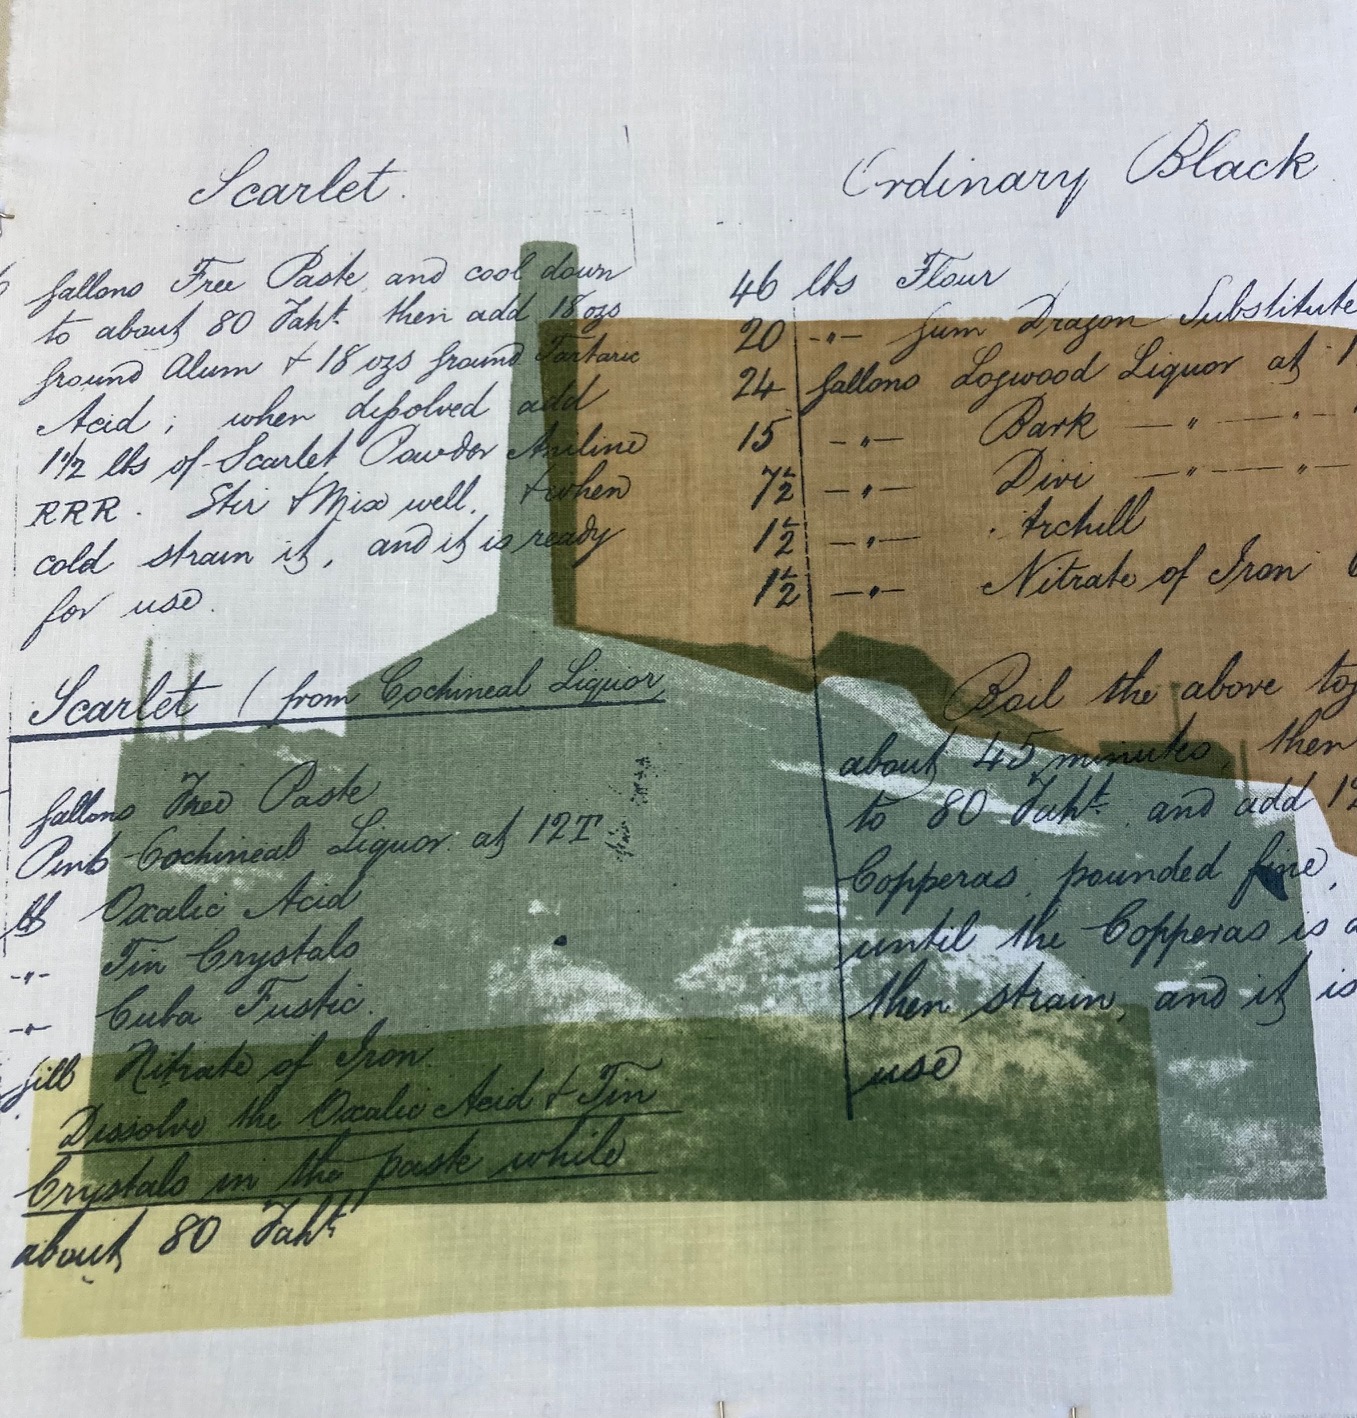 Scarlet.
gallons Free Paste, and cool down
to about 80 Faht. then add 18 ozs
ground Alum & 18 ozs ground Tartaric
Acid; when dissolved add
1 1/2 lbs of Scarlet Powder Aniline
RRR. Stir & Mix well, & when
cold strain it, and it is ready
for use.
Scarlet (from Cochineal Liquor
gallons Free Paste
Pint Cochineal Liquor at 12T
lb Oxalic Acid
-"- Tin Crystals
-"- Cuba Fustic.
gill Nitrate of Iron
Dissolve the Oxalic Acid & Tin
Crystals in the paste while
about 80 Faht
Ordinary Black
46 lbs Flour
20 -"- Gum Dragon Substitute
24 gallons Logwood Liquor at
15 -"- Bark -"- -"-
7 1/2 -"- Divi -"- -"-
1 1/2 -"- Archill
1 1/2 -"- Nitrate of Iron
Boil the above
about 45 minutes, then
to 80 Faht. and add
Copperas, pounded fine,
until the Copperas is
then strain, and it is
use